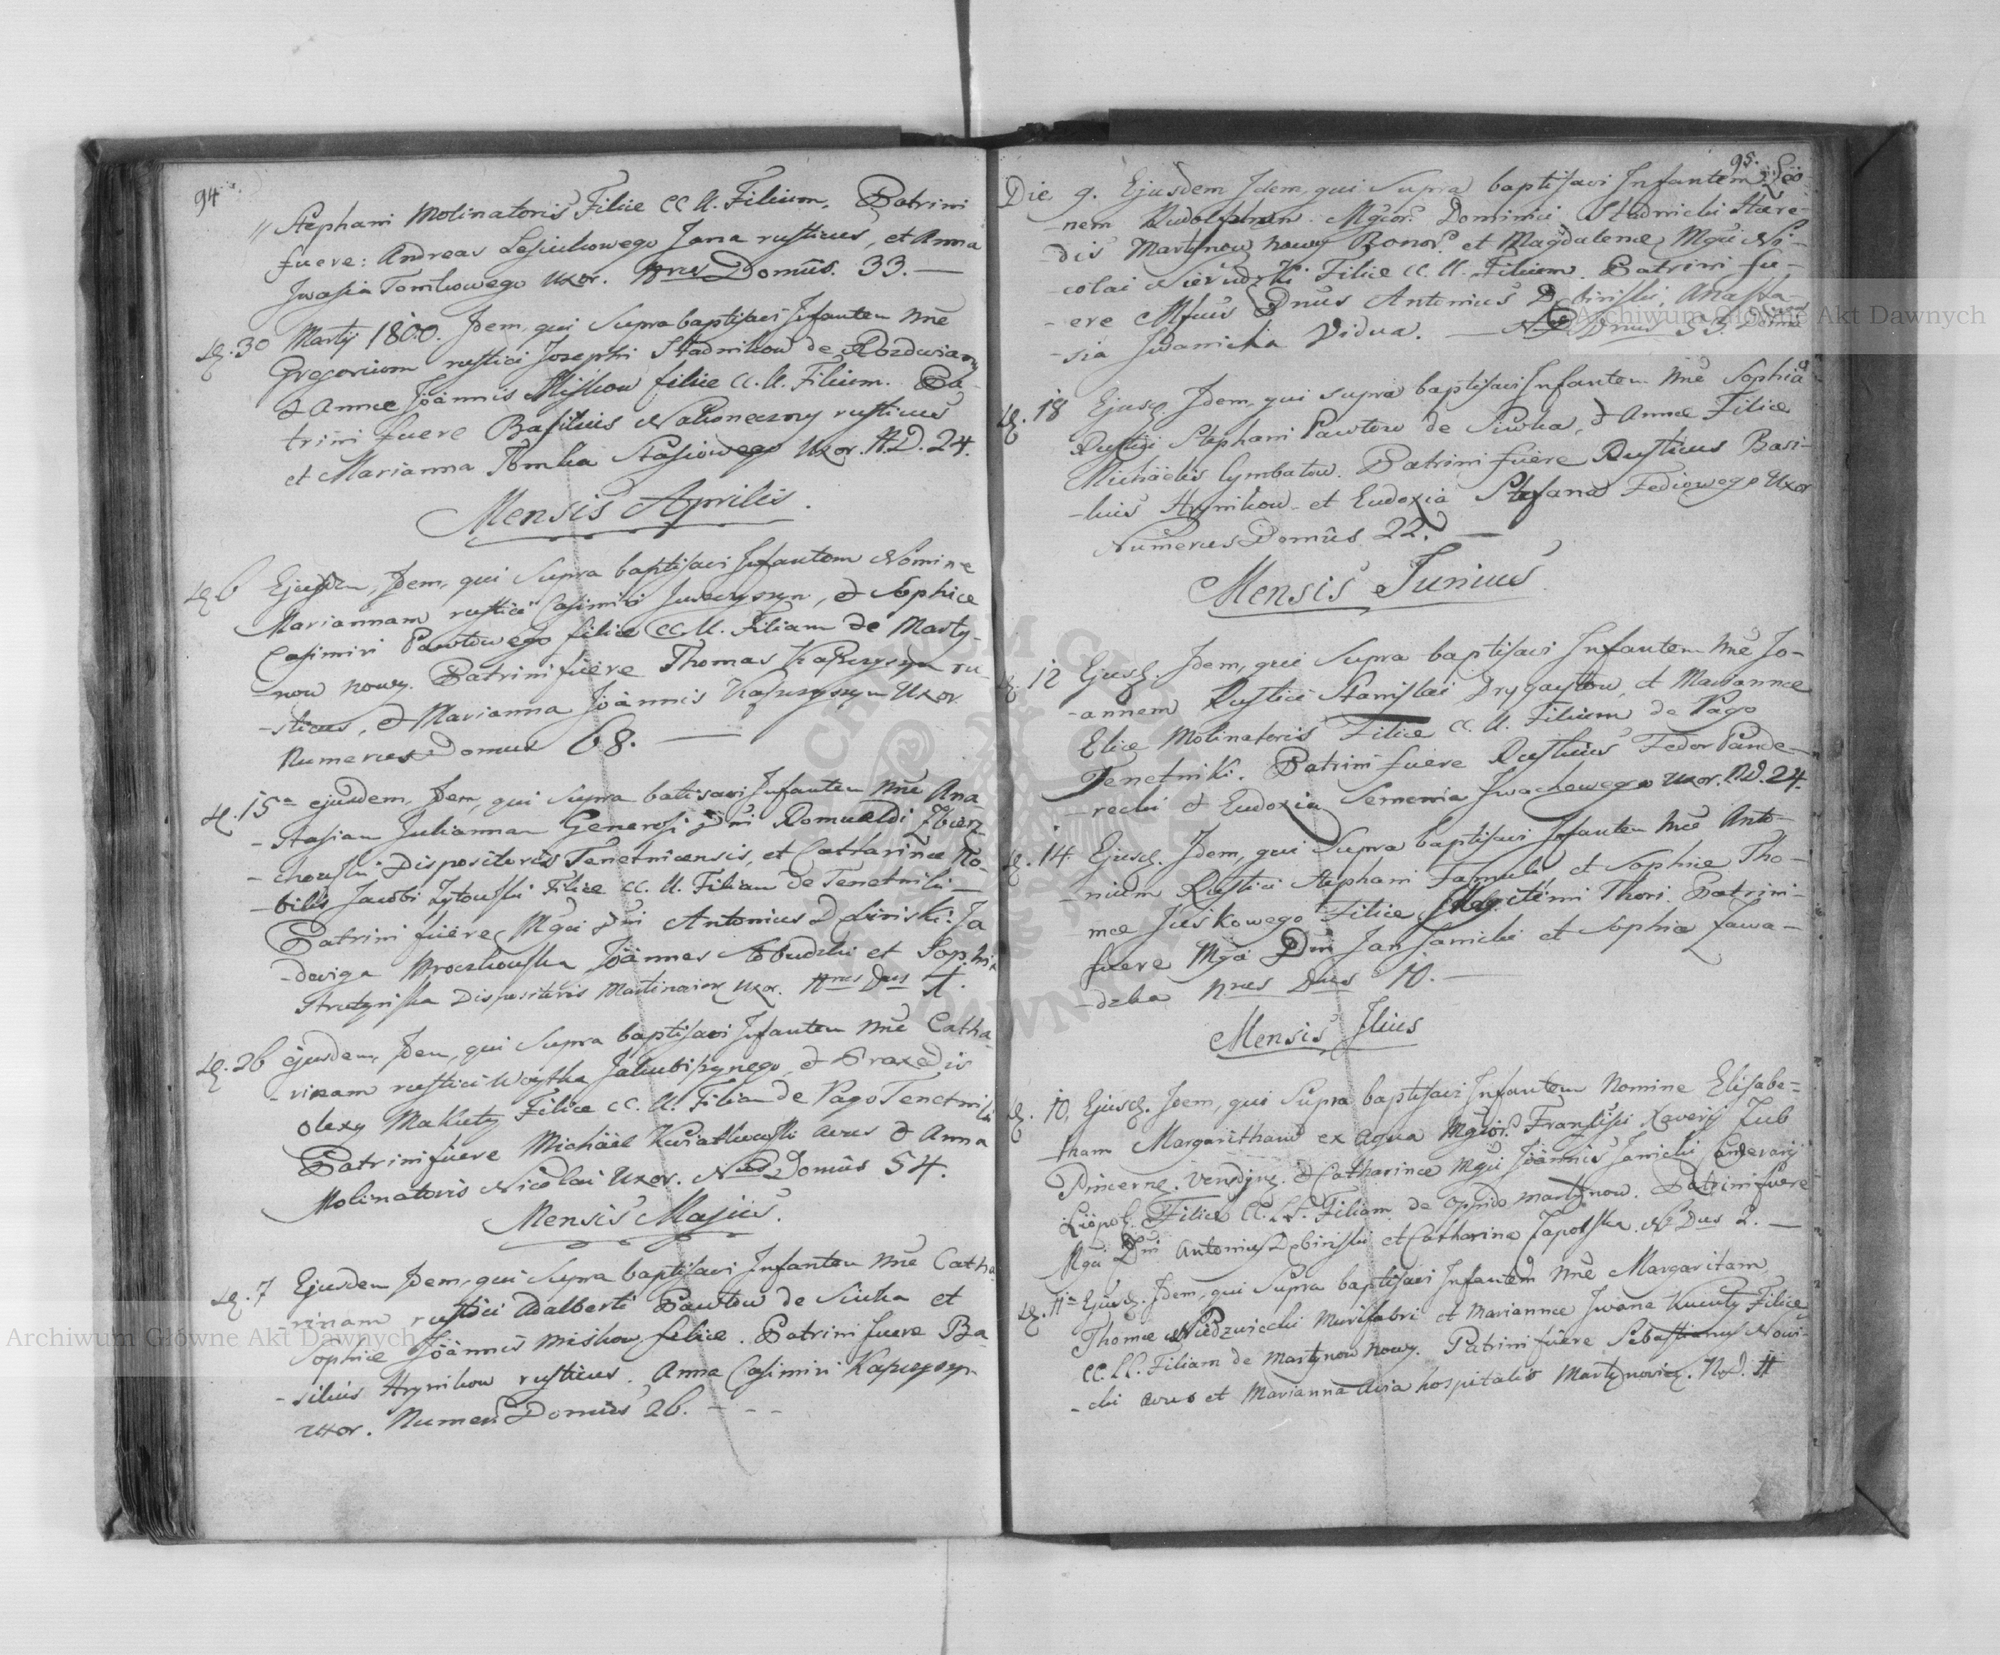 94
Stephani Molinatoris Filiæ CC. LL. Filium. Patrini
fuere: Andreas Lesiukowego Jana rusticus, et Anna
Iwasia Tomkowego uxor. Nrus Domûs. 33.
D. 30 Martij 1800. Idem, qui Supra baptisavi Infantem Nne
Gregorium rustici Josephi Stadnikow de Rozdwiany
& Annæ Joannis Miskow filiæ CC. LL. Filium. Pa-
trini fuere Basilius Nakoneczny rusticus
et Marianna Tomka Stasiowego Uxor. N.D. 24.
Mensis Aprilis.
D. 6 Ejusdem, Idem, qui Supra baptisavi Infantem Nomine
Mariannam rustici Casimiri Juszczyszyn, & Sophiæ
Casimiri Pawlowego filiæ CC. LL. Filiam de Marty-
now nowy. Patrini fuere Thomas Kapczyszyn ru-
-sticus, & Marianna Joannis Kapczyszyn Uxor
Numerus Domus 68.
D. 15a ejusdem, Idem, qui Supra batisavi Infantem Nne Ana-
-stasiam Juliannam Generosi Dni Romualdi Zbierz-
-chowski Dispositoris Tenetnicensis, et Catharinæ No-
-bilis Jacobi Zytowski Filiæ CC. LL. Filiam de Tenetniki
Patrini fuere Mgci Dni Antonius Dębinski Ja
-dwiga Mroczkowska Joannes et Sophia
Strutynska Dispositoris Uxor. Nrus Dus 1.
D. 26 ejusdem, Idem, qui Supra baptisavi Infantem Nne Catha-
-rinam rustici Woytka Jakubiszynego, & Praxedis
Olexy Makuty Filiæ CC. LL. Filiam de Pago Tenetniki
Patrini fuere Michaël Kwiatkowski & Anna
Molinatoris Nicolai Uxor. Nrus Domûs 54.
Mensis Majus.
D. 7 Ejusdem Idem, qui Supra baptisavi Infantem Nne Catha-
rinam rustici Adalberti Pawlow de Siwka et
Sophiæ Joannis Miskow filiæ. Patrini fuere Ba-
-silius Hrynikow rusticus. Anna Casimiri Kapczyszyn
uxor. Numer Domûs 26.
95.
Die 9. Ejusdem Idem, qui Supra baptisavi Infantem Leo-
-nem Rudolphum Mgcor. Dominici Stadnicki Hære-
-dis Martynow nowy Bonor. et Magdalenæ Mgci Ni-
-colai Filiæ CC. LL. Filium. Patrini fu-
-ere Mfcus Dnus Antonius Dębinski, Anasta-
-sia Iwanicka Vidua. Nr. Drus 53
D. 18 Ejusd. Idem, qui supra baptisavi Infantem Nne Sophiã
Rustici Stephani Pawlow de Siwka, & Annæ Filiæ
Michaëlis Cymbalow. Patrini fuere Rusticus Basi-
-lius Hrynikow et Eudoxia Stefana Fediowego Uxor
Numerus Domûs 22.
Mensis Junius.
D. 12 Ejusd. Idem, qui Supra baptisavi Infantem Nne Jo-
-annem Rustici Stanislai Drygaylow, et Mariannæ
Eliæ Molinatoris Filiæ CC. LL. Filium de Pago
Tenetniki. Patrini fuere Rusticus Fedor Pande-
-recki & Eudoxia Semenia Iwachowego uxor. N.D. 24.
D. 14 Ejusd. Idem, qui Supra baptisavi Infantem Nne Anto-
-nium Rustici Stephani Famuli, et Sophiæ Tho-
-mæ Juskowego Filiæ, Illegitimi Thori. Patrini
fuere Mgci Dni Jan Janicki et Sophia Zawa-
-dzka Nrus Drus 10.
Mensis Jlius
D. 10. Ejusd. Idem, qui Supra baptisavi Infantem Nomine Elisabe-
-tham Margaritham ex aqua Mgcor. Francisci Xaverij Zub
Pincernæ & Catharinæ Mgci Joannis Janicki
Filiæ CC. LL. Filiam de Oppido Martynow. Patrini fuere
Mgci Dni Antonius Dębinski et Catharina Zapolska Nr Dus 2.
D. 11a Ejusd. Idem, qui Supra baptisavi Infantem Nne Margaritam
Thomæ Niedzwiecki Murifabri et Mariannæ Iwana Kucuty Filiæ
CC. LL. Filiam de Martynow nowy. Patrini fuere Sebastianus Nowi-
-cki et Marianna Avia hospitalis N.D. 11
Archiwum Główne Akt Dawnych
Archiwum Główne Akt Dawnych